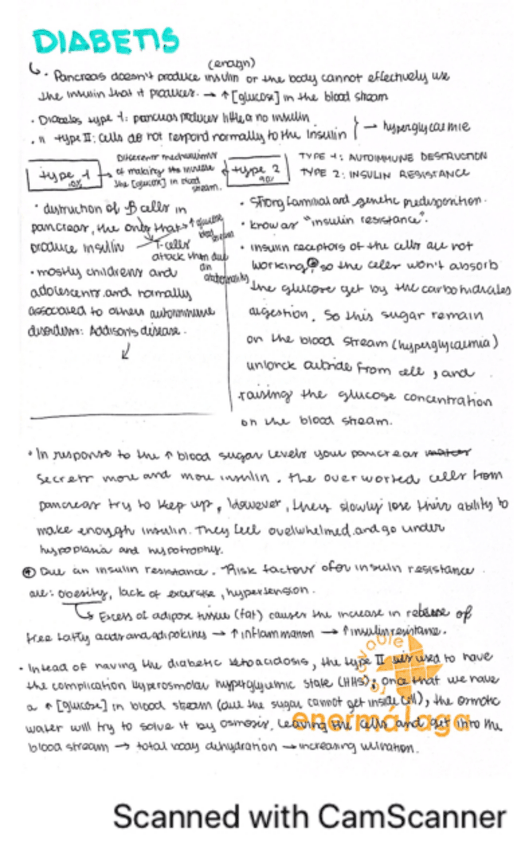 DIABETIS
(enough)
· Pancreas doesn't produce insulin or the body cannot effectively use
the insulin that it produces. → ↑ [glucose] in the blood stream
· Diabetes type 1: pancreas produces little a no insulin
· " type II: cells do not respond normally to the Insulin } → hyperglycaemie
type 1 10%
Different mechanisms of making the increase the [glucose] in blood stream.
type 2 90%
TYPE 1: AUTOIMMUNE DESTRUCTION
TYPE 2: INSULIN RESISTANCE
· distruction of β cells in
pancreas, the only that
produce insulin
↑ glucose blood stream
T-cells
attack them due
an
· mostly childrens and
adolescents and normally
associated to others autoimmune
disorders: Addison's disease.
· Strong familial and genetic predisposition.
· know as "insulin resistance".
· insulin receptors of the cells are not
working⊕, so the cells won't absorb
the glucose get by the carbohidrates
digestion. So this sugar remain
on the blood stream (hyperglycaemia)
outside from cell, and
raising the glucose concentration
on the blood stream.
· In response to the ↑ blood sugar levels your pancreas
secrets more and more insulin. The overworked cells from
pancreas try to keep up, however, they slowly lose their ability to
make enough insulin. They feel overwhelmed and go under
hypoplasia and hypotrophy.
⊕ Due an insulin resistance. Risk factors of insulin resistance
are: obesity, lack of exercise, hypertension.
↳ Excess of adipose tissue (fat) causes the increase in release of
free fatty acids and adipokins → ↑ inflammation → ↑ insulin resistance.
· Intead of having the diabetic ketoacidosis, the type II used to have
the complication Hyperosmolar hyperglycemic State (HHS); once that we have
a ↑ [glucose] in blood stream (due the sugar cannot get inside cell), the osmotic
water will try to solve it by osmosis, leaving the cells and get into the
blood stream → total body dehydration → increasing urination.
enermálaga
Scanned with CamScanner